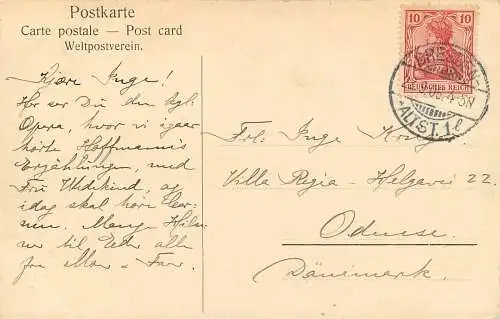 Postkarte
Carte postale — Post card
Weltpostverein.
10 10
DEUTSCHES REICH
ALTST. 1 l
Kjære Inge!
Her ser Du den kgl.
Opera, hvor vi igaar
hørte Hoffmanns
Erzählungen, med
Fru Udekind, og
idag skal høre
Mange Hils-
ner til Eder alle
fra Mor & Far.
Frl. Inge
Villa Regia - Helgavei 22.
Odense.
Dänimark.